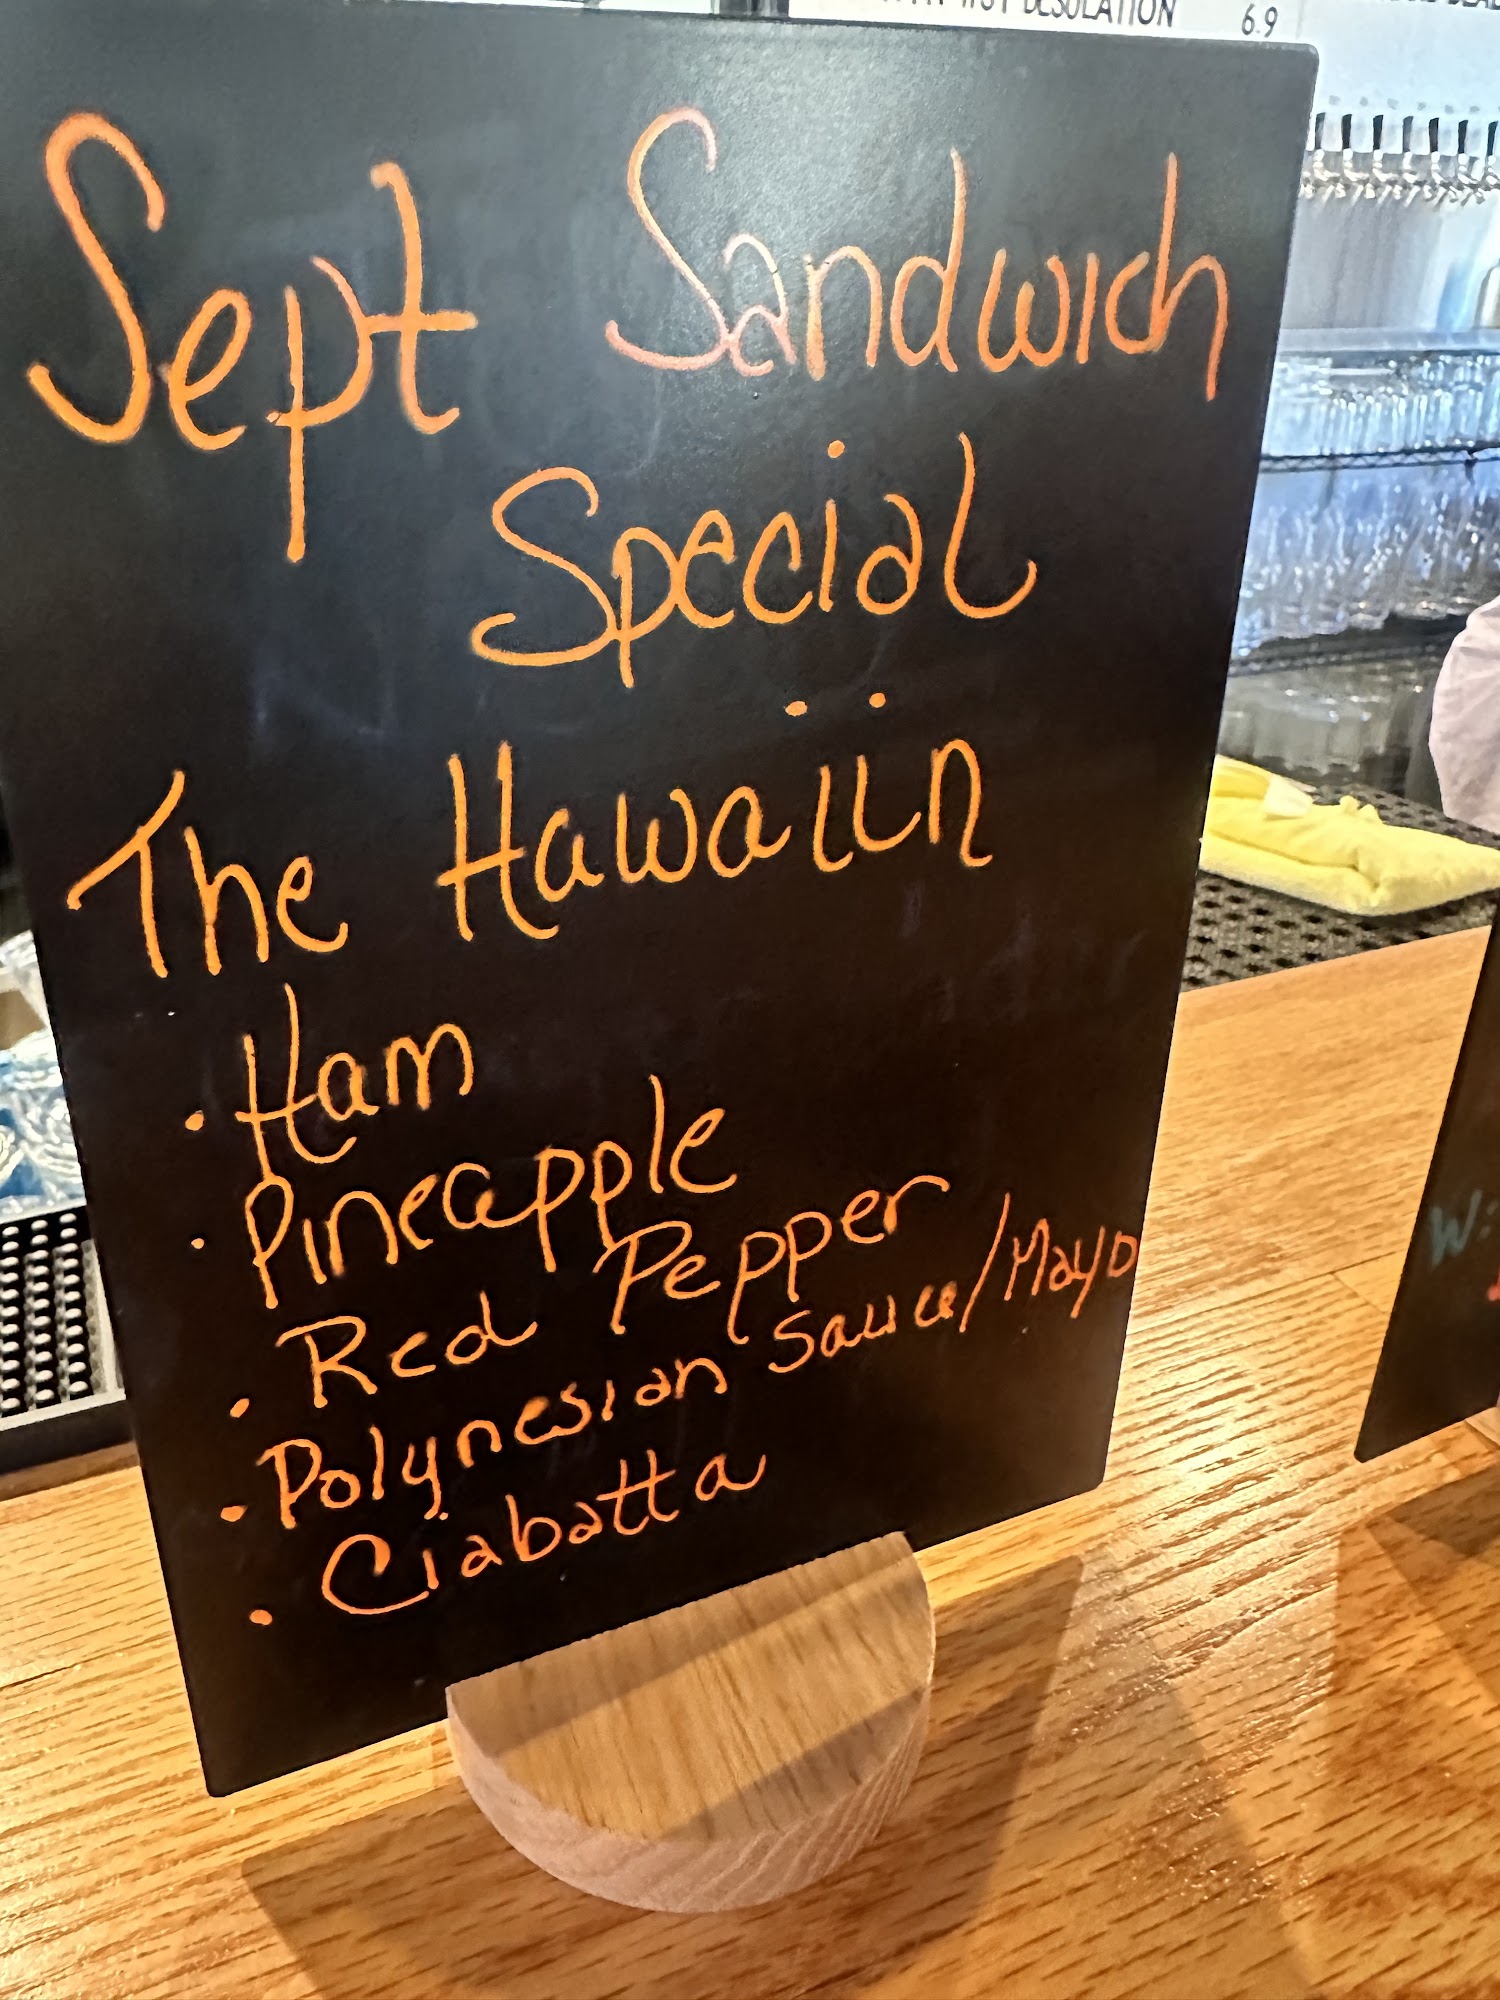 DESOLATION 6.9
Sept Sandwich
Special
The Hawaiin
• Ham
• Pineapple
• Red Pepper
• Polynesian Sauce/Mayo
• Ciabatta